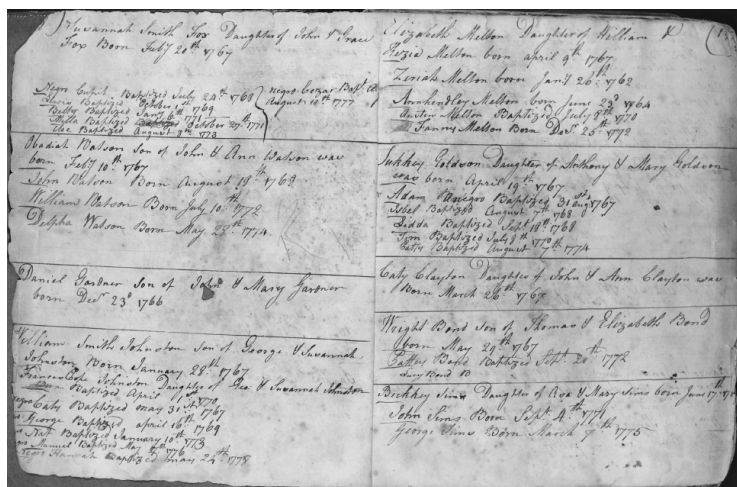 Susannah Smith Fox Daughter of John & Grace
Fox Born Feby 20th 1767
Negro Cupit, Baptized July 24th 1768
Baptized October 1st 1769
Batty Baptized Jany 6th 1771
Milla Baptized October 27th 1771
Baptized August 8th 1773
negro Cezar Bapt
August 10th 1777
Obadiah Watson Son of John & Ann Watson was
born Feby 10th 1767
John Watson Born August 19th 1769
William Watson Born July 10th 1772
Delpha Watson Born May 23d 1774
Daniel Gardner Son of John & Mary Gardner
born Decr 23d 1766
William Smith Johnston Son of George & Susannah
Johnston Born January 28th 1767
Johnston Daughter of Geo & Susannah Johnston
Baptized April 1st 1770
Caty Baptized may 31st 1767
George Baptized april 16th 1769
Nat Baptized January 10th 1773
Manuel Baptized 1776
Hannah Baptized may 24th 1778
Elizabeth Melton Daughter of William &
Kezia Melton born april 9th 1767
Melton born Jany 26th 1762
Annhendley Melton born June 23d 1764
Austin Melton Baptized July 8th 1770
Fanny Melton Born Decr 25th 1772
Sukkey Goldson Daughter of Anthony & Mary Goldson
was born April 19th 1767
Adam a negro Baptized 31st aug 1767
Isbel Baptized August 7th 1768
Lidda Baptized Sept 18th 1768
Tom Baptized July 8th 1770
Baptized August 7th 1774
Caty Clayton Daughter of John & Ann Clayton was
Born March 26th 1767
Wright Bond Son of Thomas & Elizabeth Bond
born May 20th 1767
Pattey Bond Baptized Sept 20th 1772
Lucy Bond B
Beckkey Sims Daughter of & Mary Sims born June 17th
John Sims Born Sept 4th 1771
George Sims Born March 7th 1775